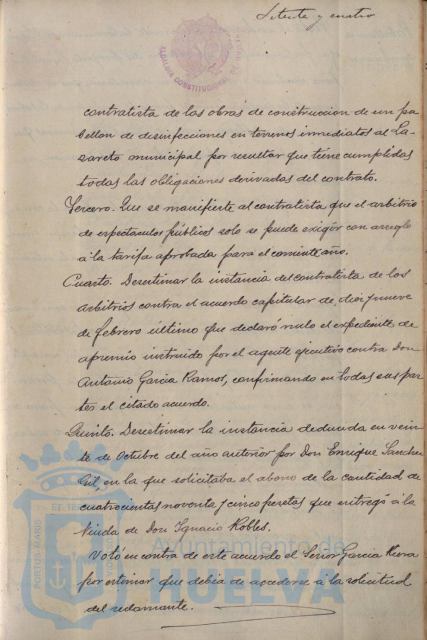 Setenta y cuatro
ALCALDIA CONSTITUCIONAL DE HUELVA
contratista de las obras de construccion de un pa
bellon de desinfecciones en terrenos inmediatos al La-
zareto municipal por resultar que tiene cumplidas
todas las obligaciones derivadas del contrato.
Tercero. Que se manifieste al contratista que el arbitrio
de espectáculos públicos solo se puede exigir con arreglo
á la tarifa aprobada para el corriente año.
Cuarto. Desestimar la instancia del contratista de los
arbitrios contra el acuerdo capitular de diez y nueve
de febrero último que declaró nulo el expediente de
apremio instruido por el agente ejecutivo contra Don
Antonio Garcia Ramos, confirmando en todas sus par
tes el citado acuerdo.
Quinto. Desestimar la instancia deducida en vein
te de Octubre del año anterior por Don Enrique Sanchez
Gil, en la que solicitaba el abono de la cantidad de
cuatrocientas noventa y cinco pesetas que entregó á la
Viuda de Don Ignacio Robles.
Votó en contra de este acuerdo el Señor Garcia
por estimar que debia de accederse á la solicitud
del reclamante.
PORTUS MARIS
Ayuntamiento de
HUELVA